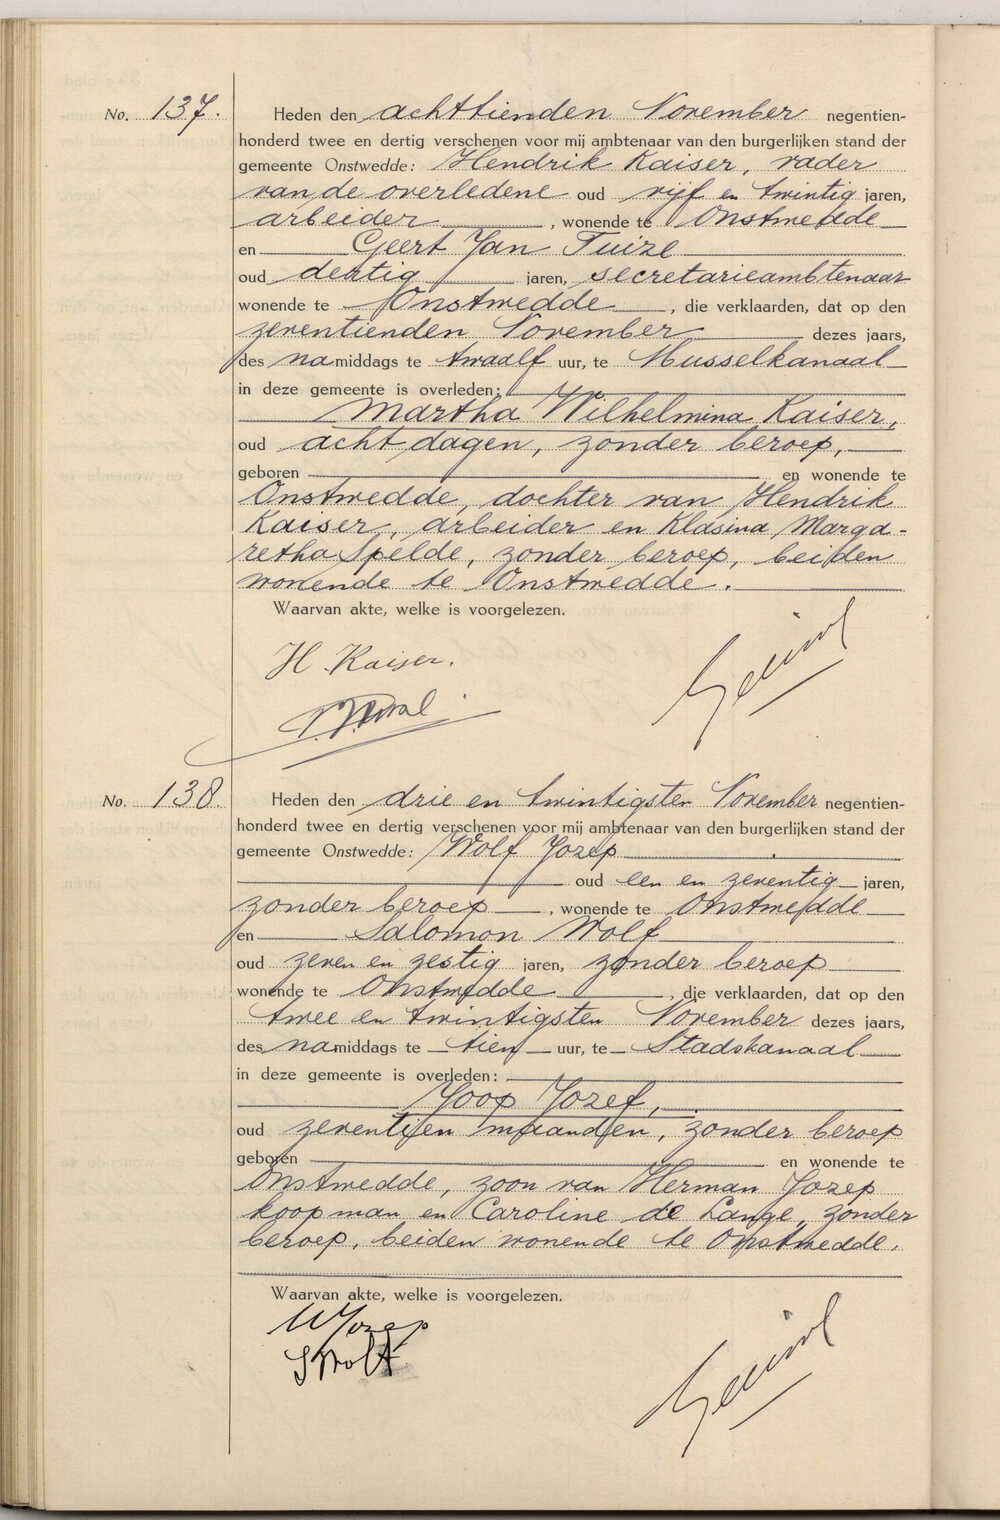 No. 137. Heden den achttienden November negentien-
honderd twee en dertig verschenen voor mij ambtenaar van den burgerlijken stand der
gemeente Onstwedde: Hendrik Kaiser, vader
van de overledene oud vijf en twintig jaren,
arbeider, wonende te Onstwedde
en Geert Jan Tuize
oud dertig jaren, secretarieambtenaar
wonende te Onstwedde, die verklaarden, dat op den
zeventienden November dezes jaars,
des namiddags te twaalf uur, te Musselkanaal
in deze gemeente is overleden:
Martha Wilhelmina Kaiser,
oud acht dagen, zonder beroep,
geboren en wonende te
Onstwedde, dochter van Hendrik
Kaiser, arbeider en Klasina Marga-
retha Spelde, zonder beroep, beiden
wonende te Onstwedde.
Waarvan akte, welke is voorgelezen.
H. Kaiser.
No. 138. Heden den drie en twintigsten November negentien-
honderd twee en dertig verschenen voor mij ambtenaar van den burgerlijken stand der
gemeente Onstwedde: Wolf Jozep
oud een en zeventig jaren,
zonder beroep, wonende te Onstwedde
en Salomon Wolf
oud zeven en zestig jaren, zonder beroep
wonende te Onstwedde, die verklaarden, dat op den
twee en twintigsten November dezes jaars,
des namiddags te tien uur, te Stadskanaal
in deze gemeente is overleden:
Joop Jozef,
oud zeventien maanden, zonder beroep
geboren en wonende te
Onstwedde, zoon van Herman Jozep
koopman en Caroline de Lange, zonder
beroep, beiden wonende te Onstwedde.
Waarvan akte, welke is voorgelezen.
W Jozep
S Wolf